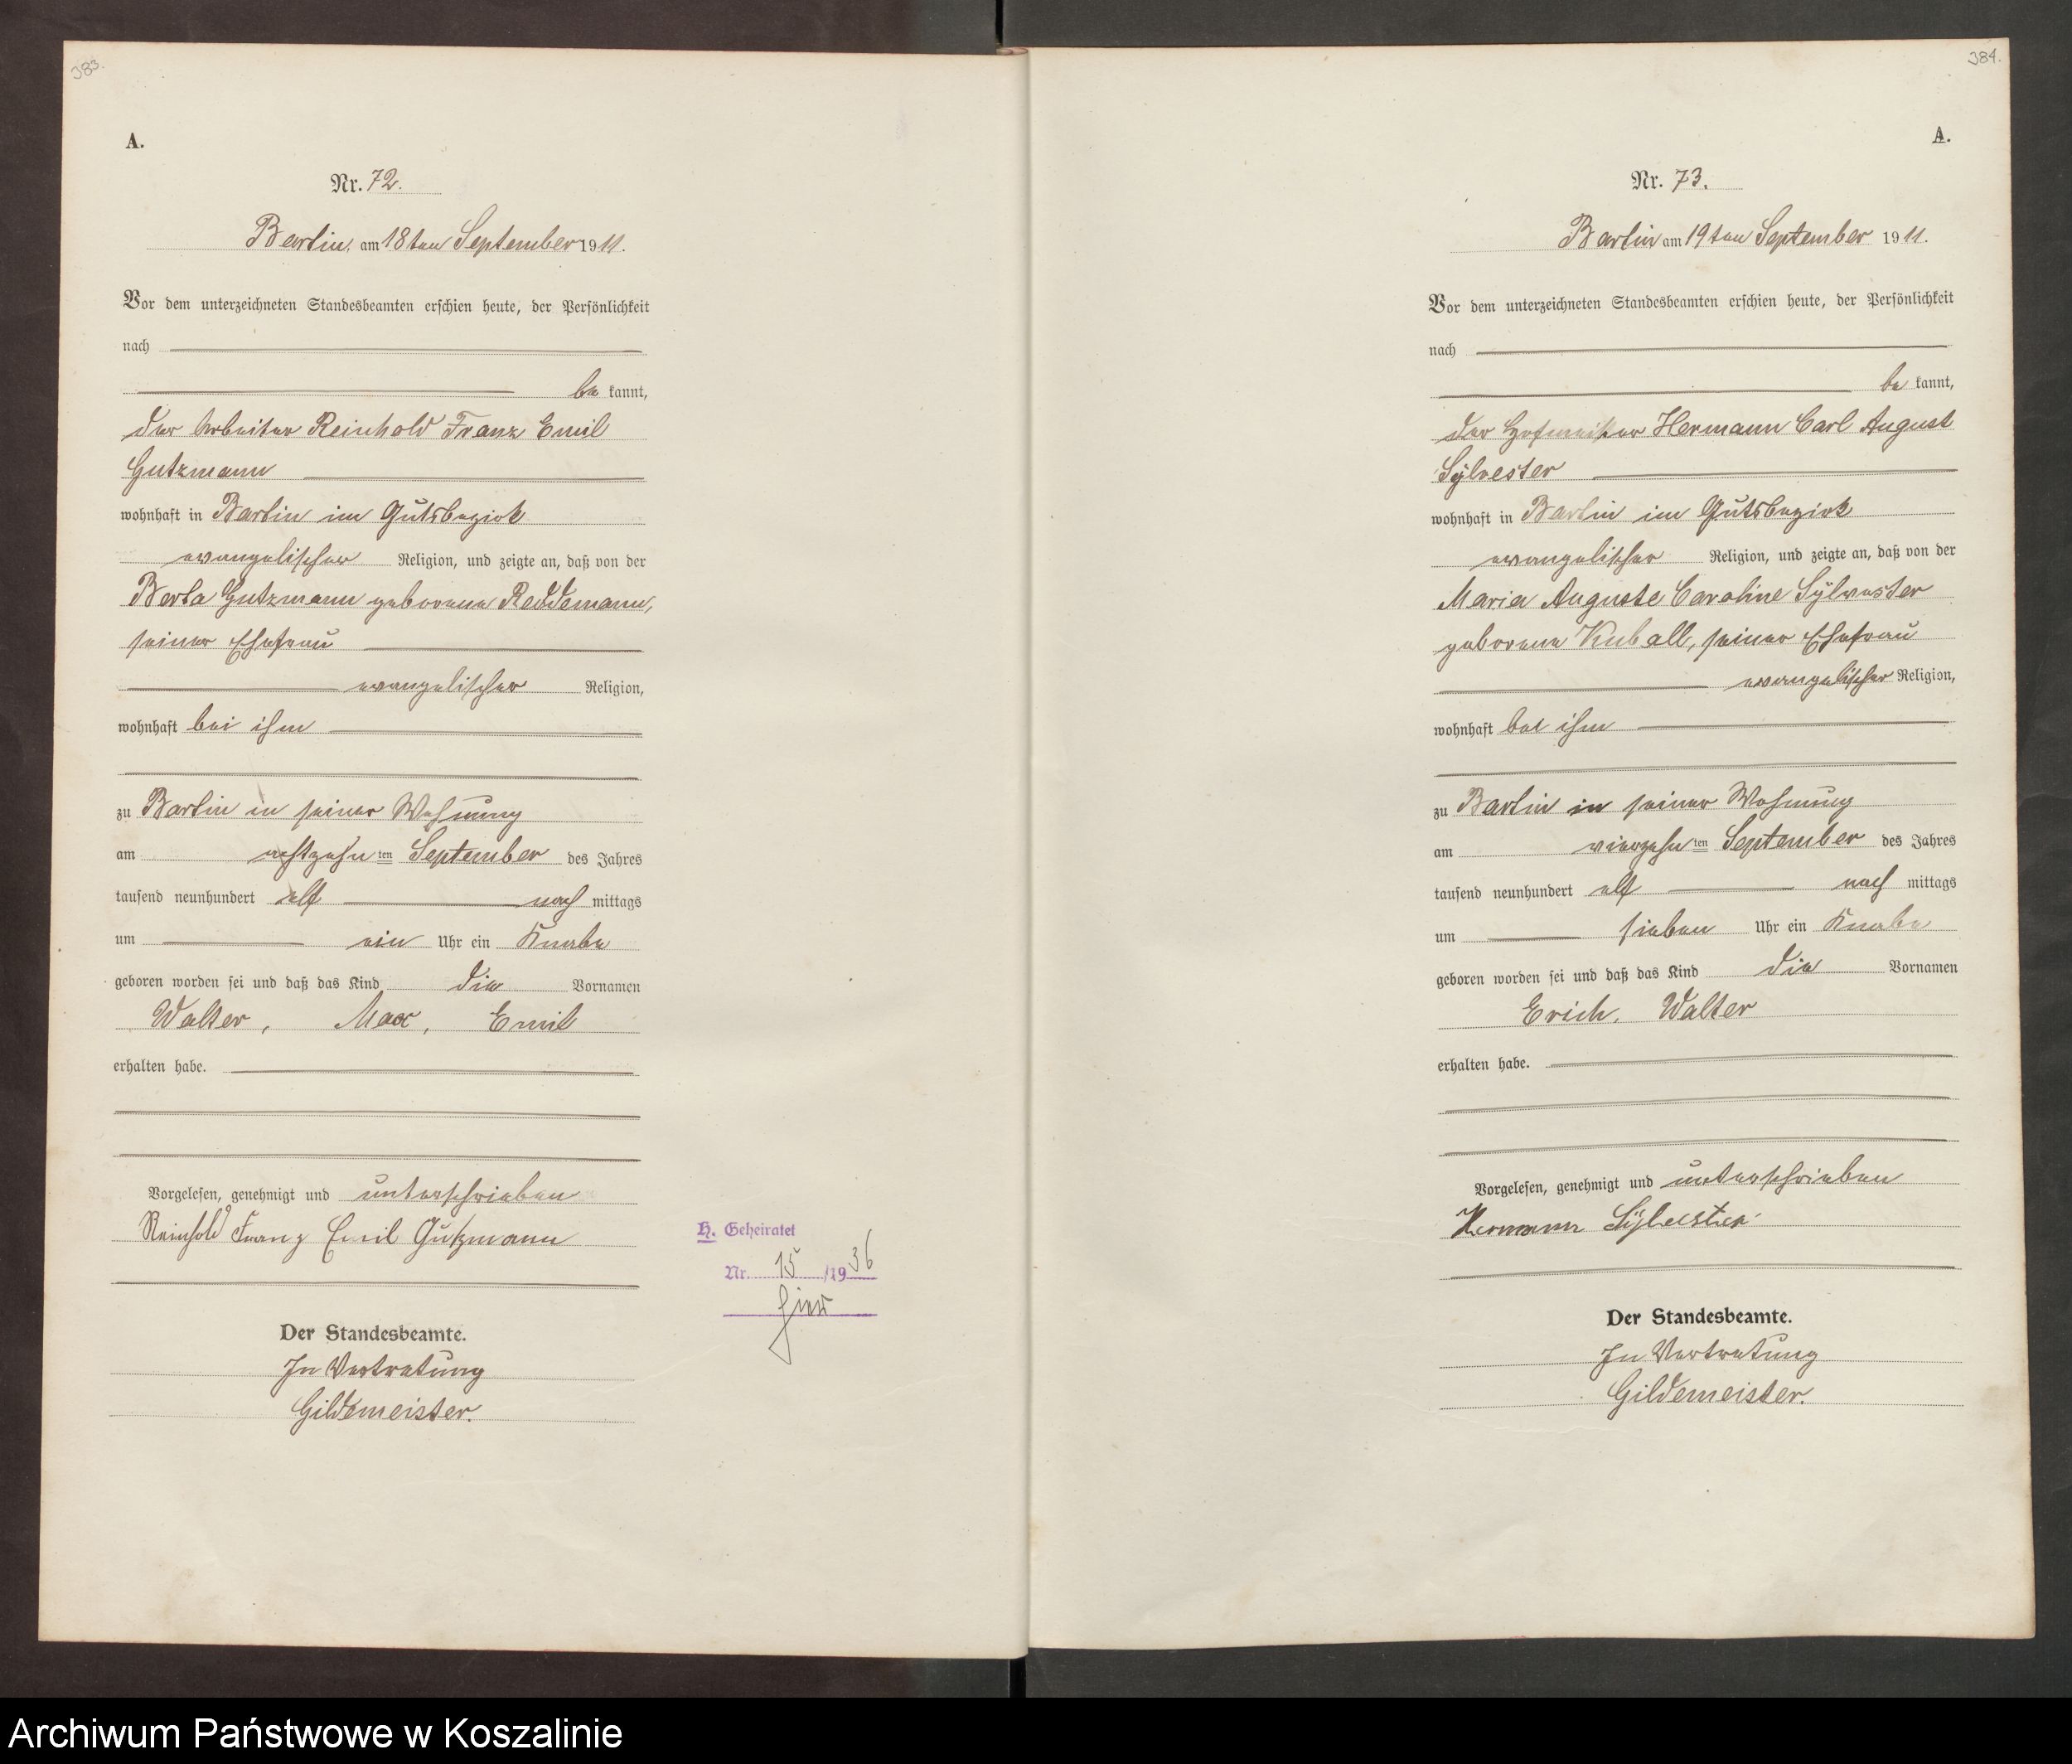 383.
A.
Nr. 72.
Bartin, am 18ten September 1911.
Vor dem unterzeichneten Standesbeamten erschien heute, der Persönlichkeit
nach
be kannt,
der Arbeiter Reinhold Franz Emil
Gutzmann
wohnhaft in Bartin im Gutsbezirk
evangelischer Religion, und zeigte an, daß von der
Berta Gutzmann geborene Reddemann,
seiner Ehefrau
evangelischer Religion,
wohnhaft bei ihm
zu Bartin in seiner Wohnung
am achtzehnten September des Jahres
tausend neunhundert elf nach mittags
um ein Uhr ein Knabe
geboren worden sei und daß das Kind die Vornamen
Walter, Max, Emil
erhalten habe.
Vorgelesen, genehmigt und unterschrieben
Reinhold Franz Emil Gutzmann
H. Geheiratet
Nr. 15 /1936
hier
Der Standesbeamte.
In Vertretung
Gildemeister.
384.
A.
Nr. 73.
Bartin am 19ten September 1911.
Vor dem unterzeichneten Standesbeamten erschien heute, der Persönlichkeit
nach
be kannt,
der Hofmeister Hermann Carl August
Sylvester
wohnhaft in Bartin im Gutsbezirk
evangelischer Religion, und zeigte an, daß von der
Maria Auguste Caroline Sylvester
geborene Kuball, seiner Ehefrau
evangelischer Religion,
wohnhaft bei ihm
zu Bartin in seiner Wohnung
am vierzehnten September des Jahres
tausend neunhundert elf nach mittags
um sieben Uhr ein Knabe
geboren worden sei und daß das Kind die Vornamen
Erich, Walter
erhalten habe.
Vorgelesen, genehmigt und unterschrieben
Hermann Sylvester
Der Standesbeamte.
In Vertretung
Gildemeister.
Archiwum Państwowe w Koszalinie